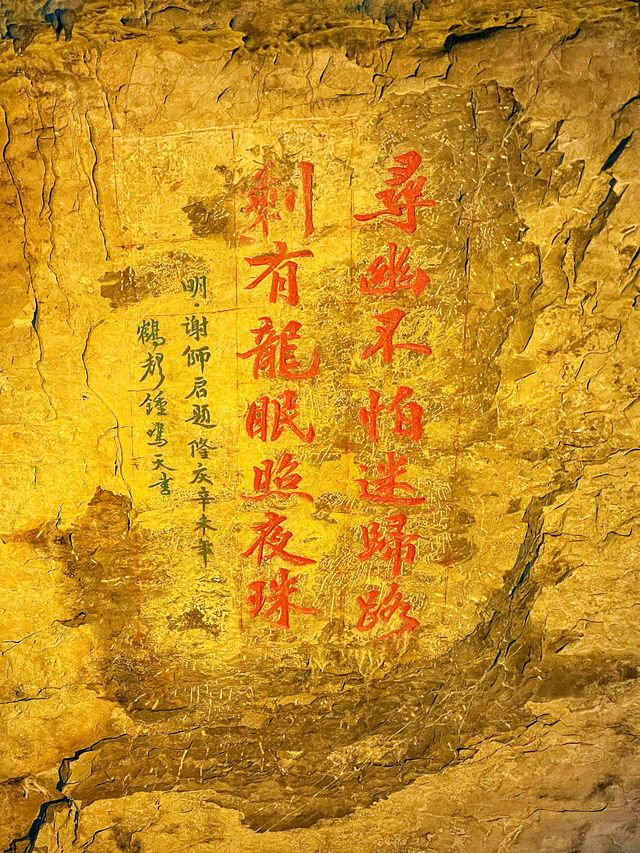 尋幽不怕迷歸路
剩有龍眠照夜珠
明·谢师启题 隆庆辛未年
鶴彪鍾鳴天書